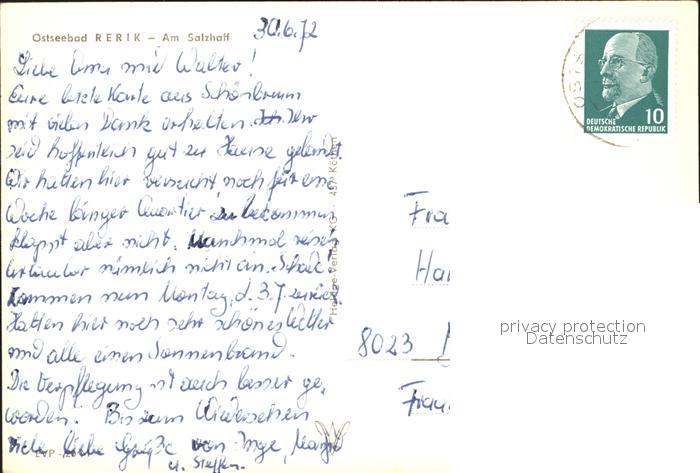 Ostseebad RERIK – Am Salzhaff
30.6.72
Liebe Oma und Walter!
Eure letzte Karte aus Schönbrunn
mit vielen Dank erhalten. Ihr
seid hoffentlich gut zu Hause gelandet.
Wir hatten hier versucht, noch für eine
Woche länger Quartier zu bekommen
klappt aber nicht. Manchmal reisen
Urlauber nämlich nicht an. Schade
kommen nun Montag, d. 3.7. zurück.
Hatten hier noch sehr schönes Wetter
und alle einen Sonnenbrand.
Die Verpflegung ist auch besser ge-
worden. Bis zum Wiedersehen
viele liebe Grüße von Inge,
u. Steffen.
DEUTSCHE
DEMOKRATISCHE REPUBLIK
10
Fra
Ha
8023
Frau
privacy protection
Datenschutz